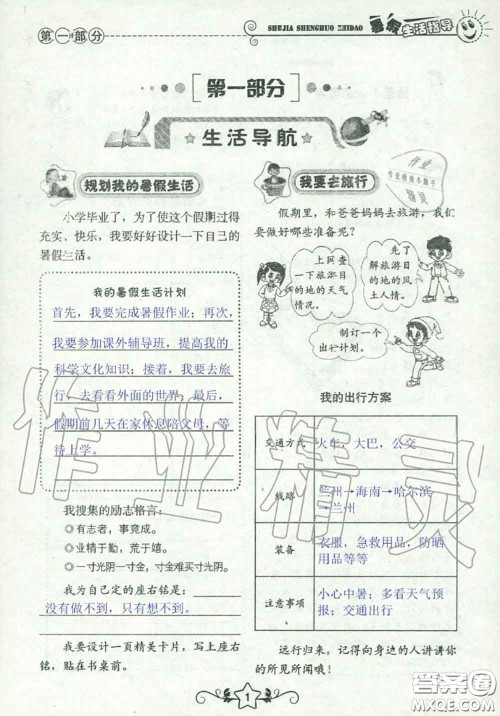 第一部分
SHUJIA SHENGHUO ZHIDAO
暑假生活指导
第一部分
生活导航
规划我的暑假生活
小学毕业了，为了使这个假期过得
充实、快乐，我要好好设计一下自己的
暑假生活。
我的暑假生活计划
首先，我要完成暑假作业；再次，
我要参加课外辅导班，提高我的
科学文化知识；接着，我要去旅
行，去看看外面的世界，最后，
假期前几天在家休息陪父母，等
待上学。
我搜集的励志格言：
◎有志者，事竟成。
◎业精于勤，荒于嬉。
◎一寸光阴一寸金，寸金难买寸光阴。
我为自己定的座右铭是：
没有做不到，只有想不到。
我要设计一页精美卡片，写上座右
铭，贴在书桌前。
我要去旅行
假期里，和爸爸妈妈去旅游，我们
要做好哪些准备呢？
上网查
一下旅游目
的地的天气
情况。
先了
解旅游目
的地的风
土人情。
制订一个
出行计划。
我的出行方案
交通方式 火车，大巴，公交
线路 兰州→海南→哈尔滨
→兰州
装备 衣服，急救用品，防晒
用品等等
注意事项 小心中暑；多看天气预
报；交通出行
远行归来，记得向身边的人讲讲你
的所见所闻哦！
1
作业精灵
答案圈
MXQE.COM